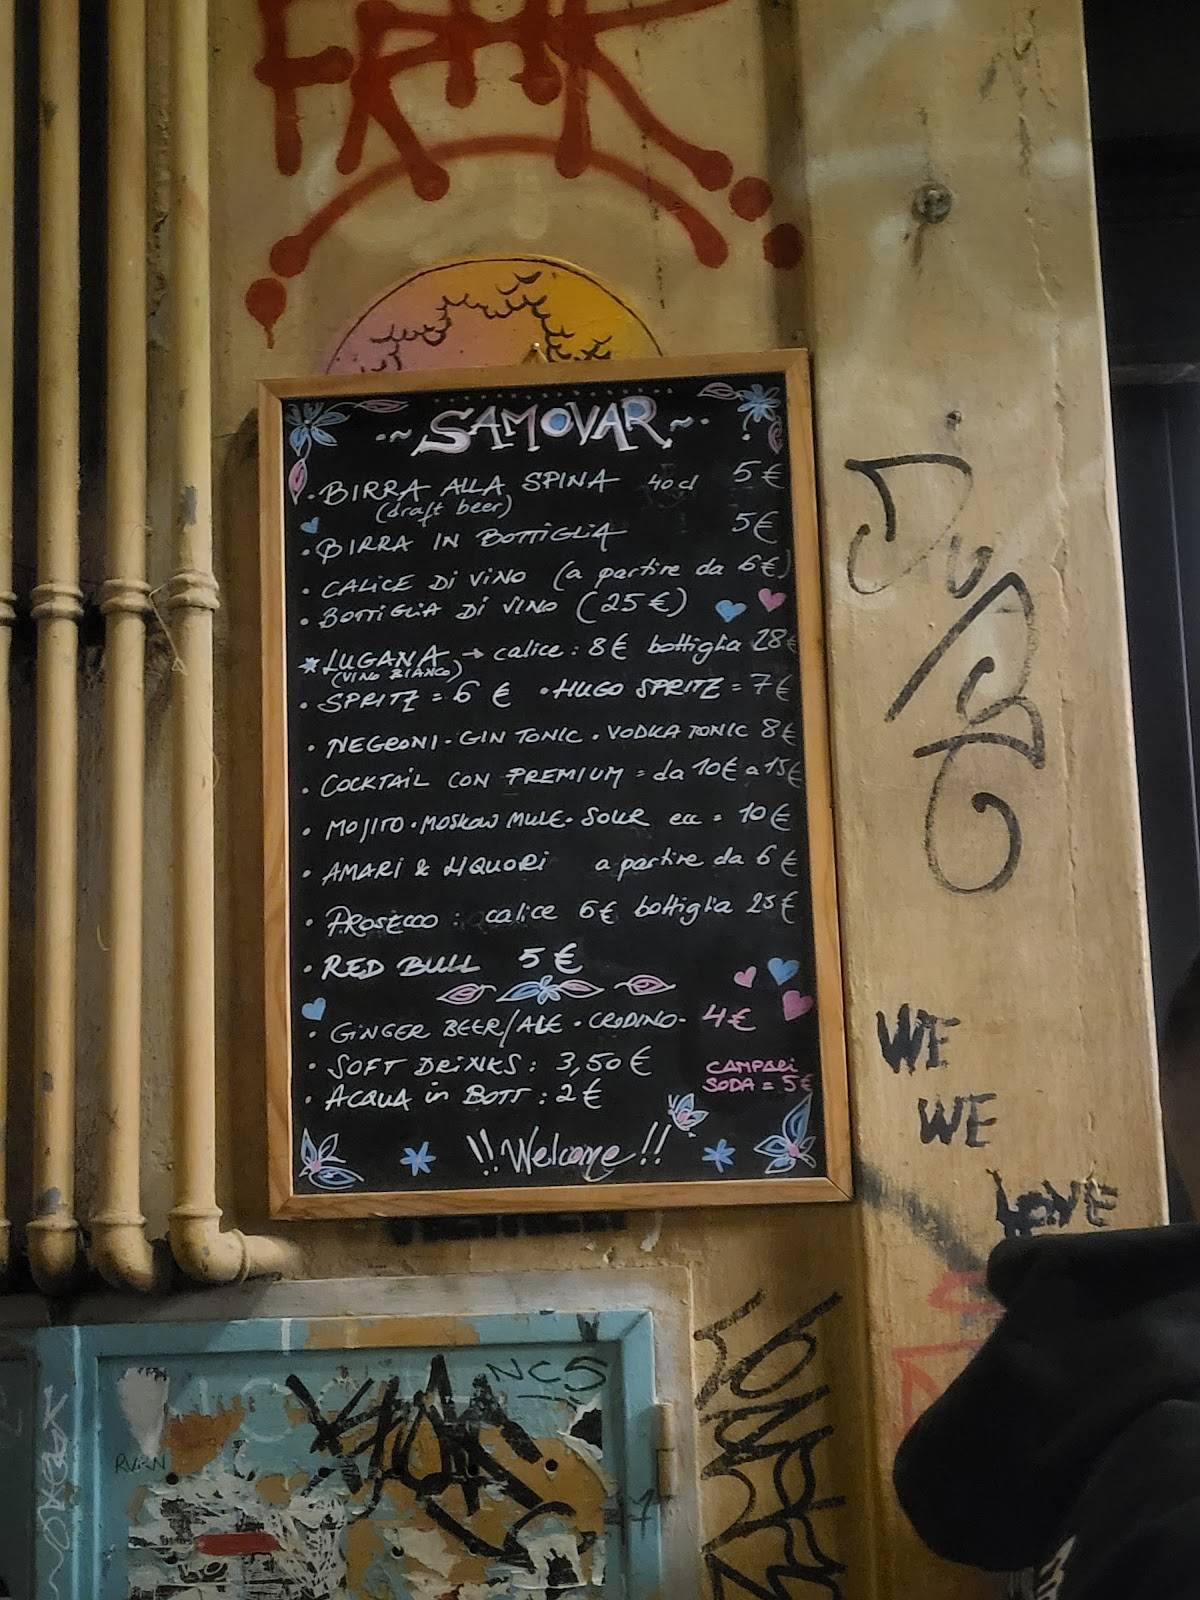 SAMOVAR
• BIRRA ALLA SPINA 40cl 5€
(draft beer)
• BIRRA IN BOTTIGLIA 5€
• CALICE DI VINO (a partire da 6€)
• BOTTIGLIA DI VINO (25€)
* LUGANA → calice: 8€ bottiglia 28€
(VINO BIANCO)
• SPRITZ = 6 € • HUGO SPRITZ = 7€
• NEGRONI - GIN TONIC • VODKA TONIC 8€
• COCKTAIL CON PREMIUM = da 10€ a 15€
• MOJITO • MOSKOW MULE • SOUR ecc = 10€
• AMARI & LIQUORI a partire da 6€
• PROSECCO: calice 6€ bottiglia 25€
• RED BULL 5€
• GINGER BEER/ALE • CRODINO - 4€
• SOFT DRINKS: 3,50€
CAMPARI
SODA = 5€
• ACQUA in BOTT: 2€
!! Welcome !!
WE
WE
LOVE
NCS